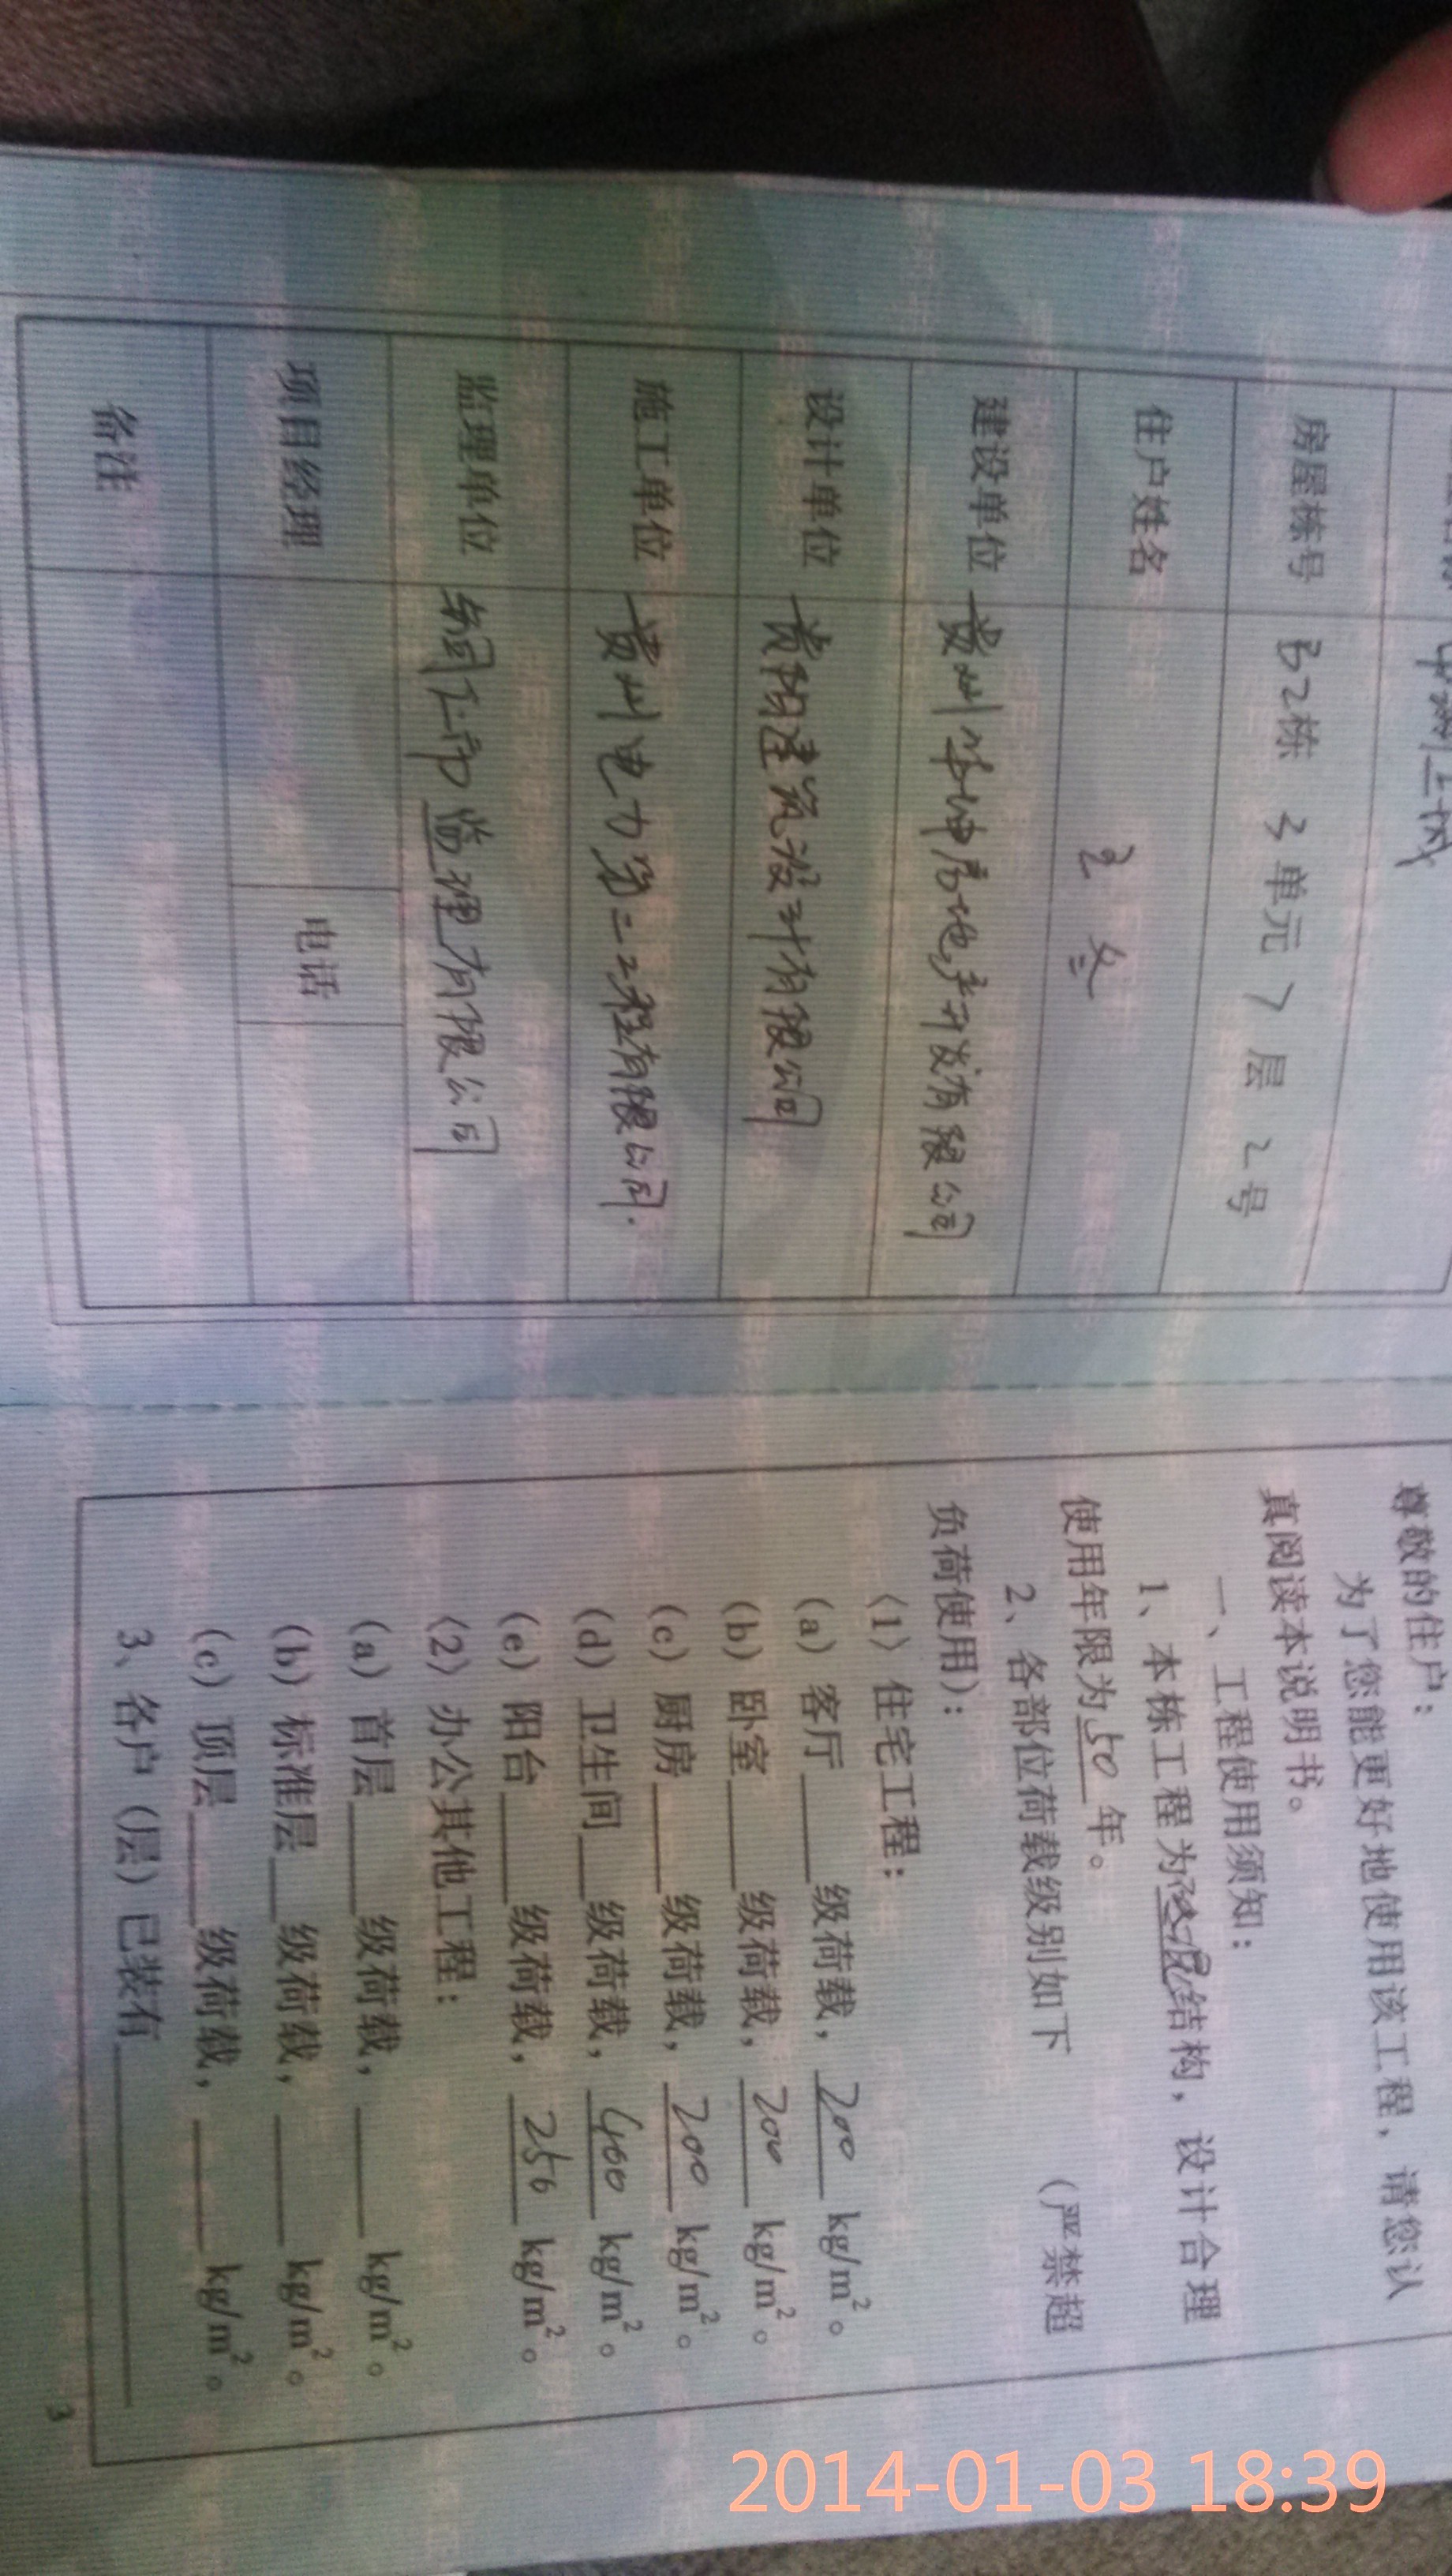 房屋栋号 B2栋 3单元 7层 2号
住户姓名 王冬
建设单位 贵州华坤房地产开发有限公司
设计单位 贵阳建筑设计有限公司
施工单位 贵州电力第二工程有限公司.
监理单位 监理有限公司
项目经理 电话
备注
尊敬的住户:
为了您能更好地使用该工程,请您认
真阅读本说明书。
一、工程使用须知:
1、本栋工程为 结构,设计合理
使用年限为50年。
2、各部位荷载级别如下 (严禁超
负荷使用):
〈1〉住宅工程:
(a)客厅____级荷载,200 kg/m²。
(b)卧室____级荷载,200 kg/m²。
(c)厨房____级荷载,200 kg/m²。
(d)卫生间____级荷载,400 kg/m²。
(e)阳台____级荷载,250 kg/m²。
〈2〉办公其他工程:
(a)首层____级荷载,____kg/m²。
(b)标准层____级荷载,____kg/m²。
(c)顶层____级荷载,____kg/m²。
3、各户(层)已装有____________
3
2014-01-03 18:39